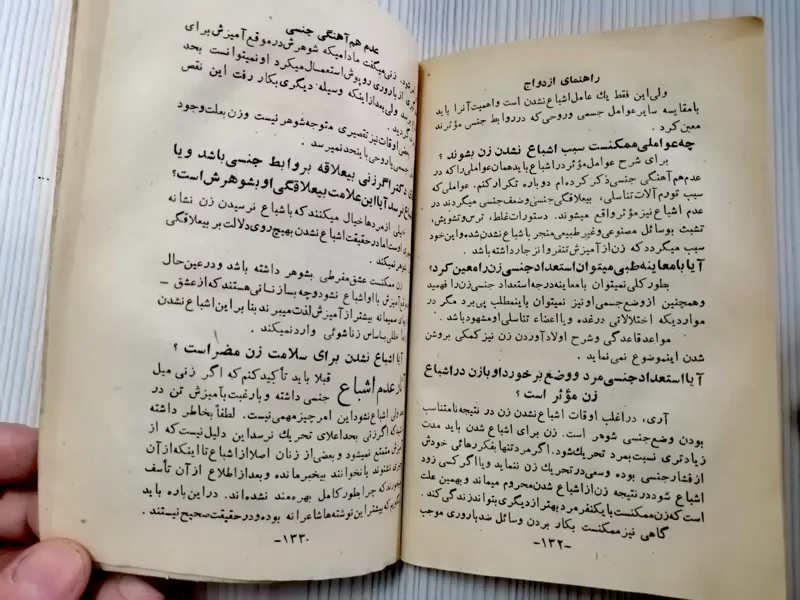 راهنمای ازدواج
ولی این فقط یك عامل اشباع نشدن است و اهمیت آنرا باید
با مقایسه سایر عوامل جسمی و روحی که در روابط جنسی مؤثرند
معین کرد .
چه عواملی ممکنست سبب اشباع نشدن زن بشوند ؟
برای شرح عوامل مؤثر در اشباع باید همان عواملی را که در
عدم هم‌آهنگی جنسی ذکر کرده‌ام دوباره تکرار کنم. عواملی که
سبب تورم آلات تناسلی، بیعلاقگی جنسی وضعف جنسی میگردند در
عدم اشباع نیز مؤثر واقع میشوند. دستورات غلط، ترس و تشویش،
تشبث بوسائل مصنوعی و غیر طبیعی منجر با شباع نشدن شده و این خود
سبب میگردد که زن از آمیزش تنفر و انزجار داشته باشد .
آیا با معاینه طبی میتوان استعداد جنسی زن را معین کرد؟
بطور کلی نمیتوان با معاینه درجه استعداد جنسی زن را فهمید
و همچنین از وضع جسمی او نیز نمیتوان باینمطلب پی برد مگر در
مواردیکه اختلالاتی در غده و یا اعضاء تناسلی او مشهود باشد .
مواعد قاعدگی و شرح اولاد آوردن زن نیز کمکی بروشن
شدن اینموضوع نمی نماید .
آیا استعداد جنسی مرد و وضع برخورد او با زن در اشباع
زن مؤثر است ؟
آری، در اغلب اوقات اشباع نشدن زن در نتیجه نامتناسب
بودن وضع جنسی شوهر است. زن برای اشباع شدن باید مدت
زیادتری نسبت بمرد تحریك شود. اگر مرد تنها بفکر رهائی خودش
از فشار جنسی بوده و سعی در تحریك زن ننماید و یا اگر کسی زود
اشباع شود در نتیجه زن از اشباع شدن محروم میماند و بهمین علت
است که زن ممکنست با یکنفر مرد بهتر از دیگری بتواند زندگی کند.
گاهی نیز ممکنست بکار بردن وسائل ضد باروری موجب
-۱۳۲-
عدم هم‌آهنگی جنسی
شود. زنی میگفت مادامیکه شوهرش در موقع آمیزش برای
از باروری روپوش استعمال میکرد او نمیتوانست بحد
رسد ولی بعد از اینکه وسیله دیگری بکار رفت این نقص
گردید .
اوقات نیز تقصیری متوجه شوهر نیست و زن بعلت وجود
جسمی یا روحی با ینحد نمیرسد .
دکتر اگر زنی بیعلاقه بروابط جنسی باشد و یا
نرسد آیا این علامت بیعلاقگی او بشوهرش است؟
خیلی از مردها خیال میکنند که با شباع نرسیدن زن نشانه
اوست اما در حقیقت اشباع نشدن بهیچ روی دلالت بر بیعلاقگی
شوهر نمیکند .
زن ممکنست عشق مفرطی بشوهر داشته باشد و در عین حال
آمیزش با او اشباع نشود و چه بسا زنانی هستند که از عشق –
بیشتر از آمیزش لذت میبرند بنا بر این اشباع نشدن
براساس زناشوئی وارد نمیکند .
آیا اشباع نشدن برای سلامت زن مضر است ؟
آثار عدم اشباع قبلا باید تأکید کنم که اگر زنی میل
جنسی داشته و با رغبت بآمیزش تن در
ولی اشباع نشود این امر چیز مهمی نیست. لطفاً بخاطر داشته
که اگر زنی بحد اعلای تحریك نرسد این دلیل نیست که از
متمتع نمیشود و بعضی از زنان اصلا از اشباع تا اینکه از آن
نشنوند یا نخوانند بیخبر مانده و بعد از اطلاع از آن تأسف
میخورند که چرا بطور کامل بهره‌مند نشده‌اند. در این باره باید
بگویم که بیشتر این نوشته‌ها شاعرانه بوده و در حقیقت صحیح نیستند .
-۱۳۳-